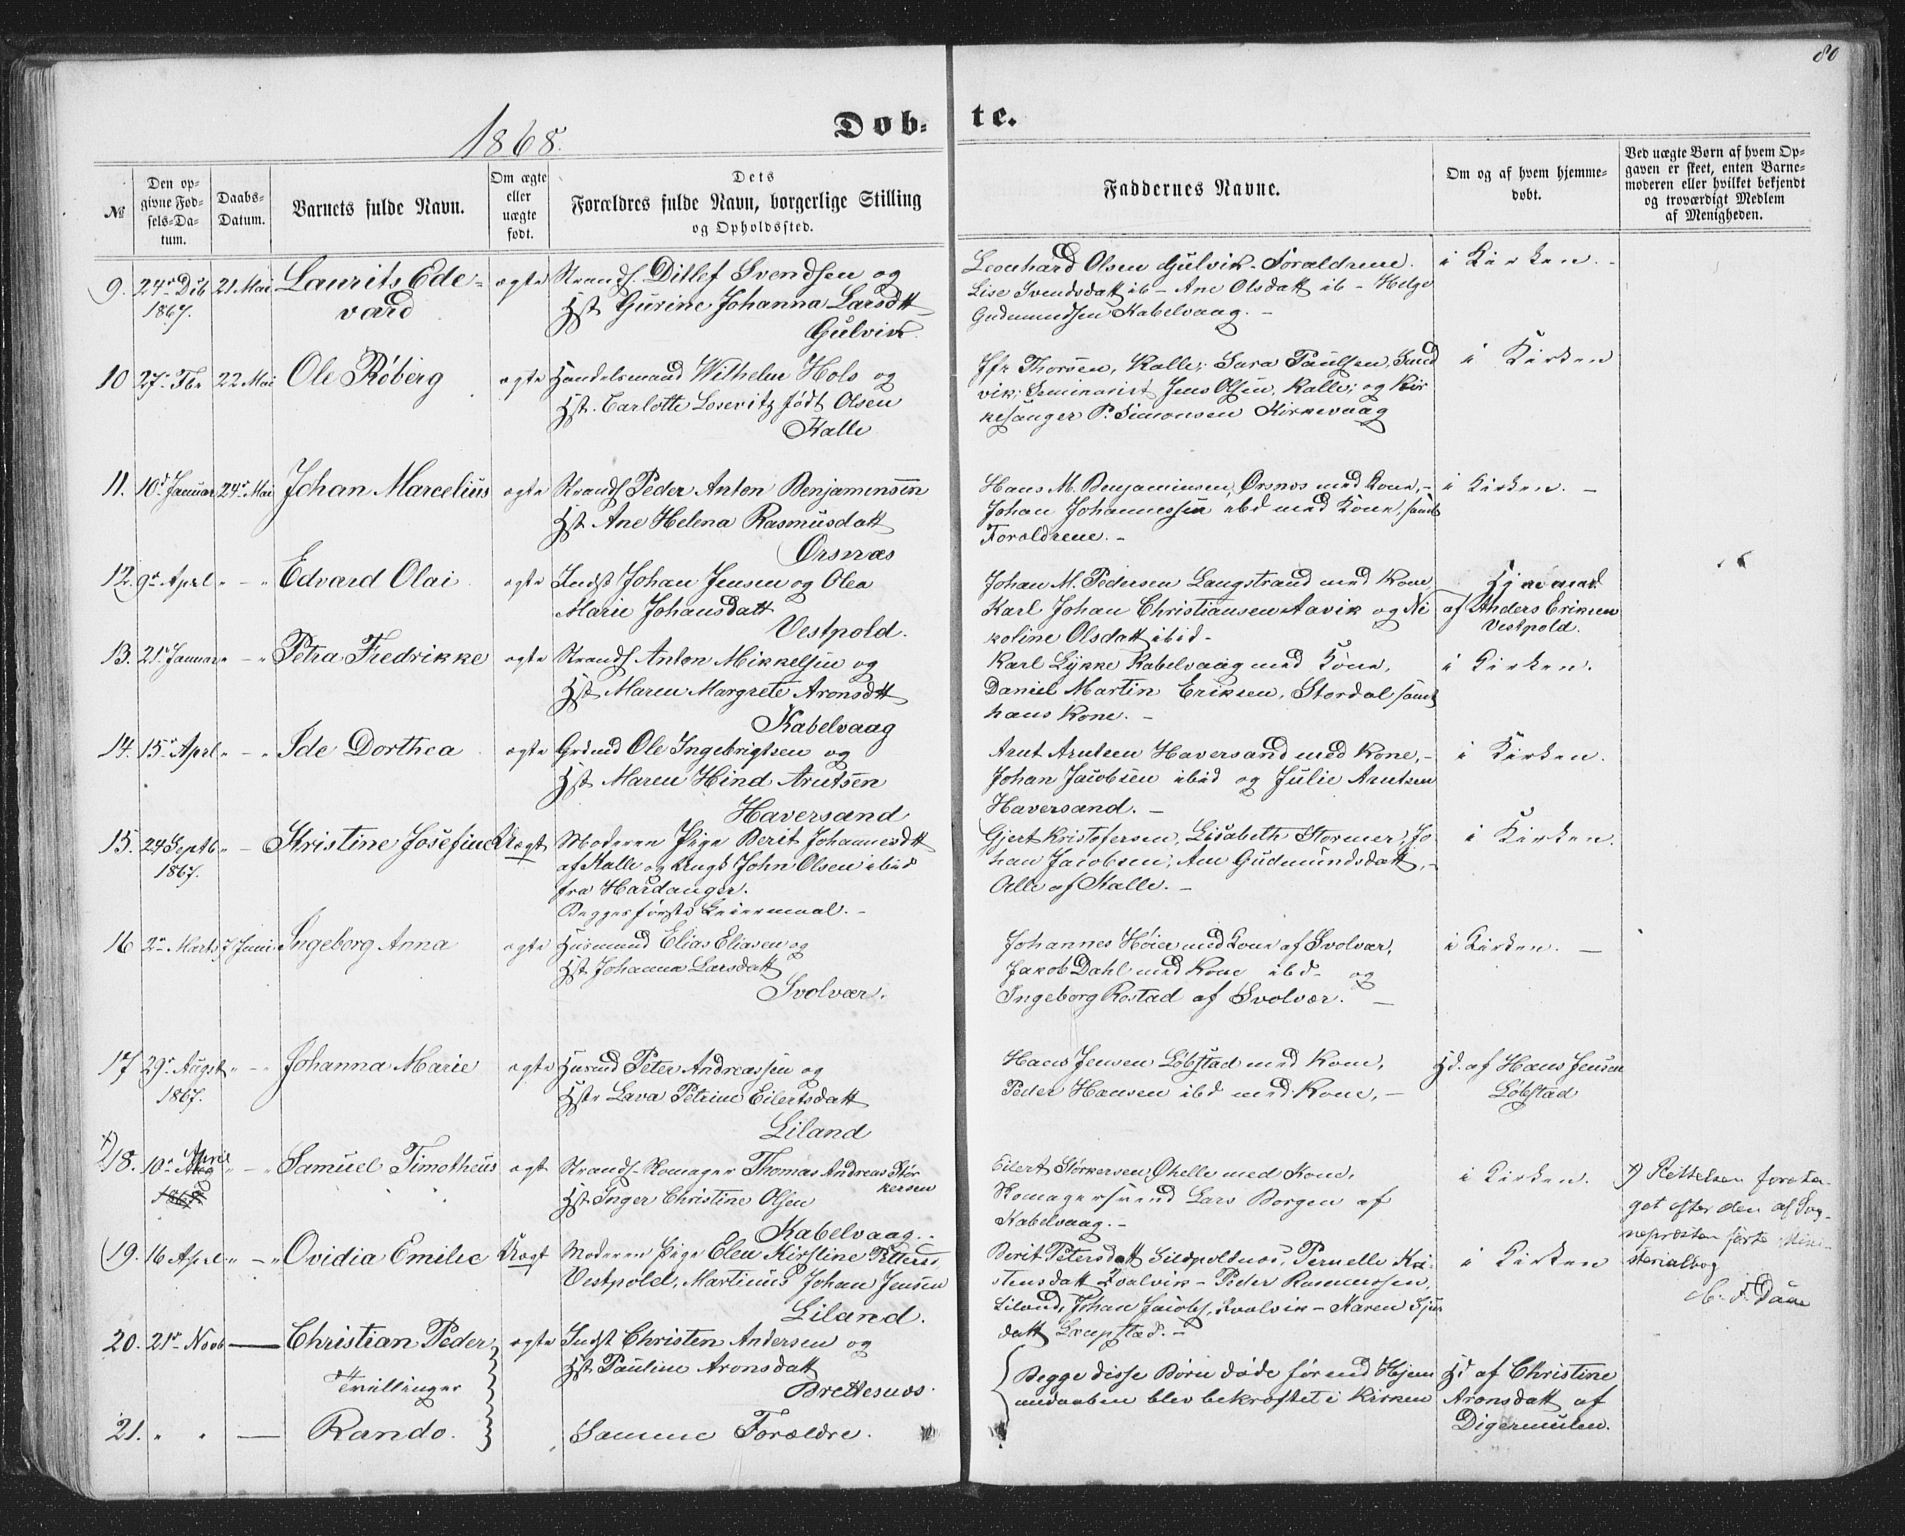 80
1868.
Døb-
te.
№
Den op-
givne Fød-
sels-Da-
tum.
Daabs-
Datum.
Barnets fulde Navn.
Om ægte
eller
uægte
født.
Dets
Forældres fulde Navn, borgerlige Stilling
og Opholdssted.
Faddernes Navne.
Om og af hvem hjemme-
døbt.
Ved uægte Børn af hvem Op-
gaven er skeet, enten Barne-
moderen eller hvilket bekjendt
og troværdigt Medlem
af Menigheden.
9. 24de Dcb 21 Mai Laurits Ede- ægte Strands. Ditlef Svendsen og
1867. vard Hst Gurine Johanna Larsdtt
Gulvik.
Leonhard Olsen Gulvik - Forældrene. i Kirken. -
Lise Svendsdatt ib - Ane Olsdatt ib - Helge
Gudmundsen Kabelvaag. -
10 27de Fbr 22 Mai Ole Røberg ægte Handelsmand Wilhelm Hols og
Hst. Carlotte Lorevitz født Olsen
Kalle
Jfr Thorsen, Kalle; Sara Paulsen, Sund i Kirken
vik; Seminarist Jens Olsen, Kalle; og Kir
kesanger P. Simonsen Kirkevaag
11. 10de Januar 24de Mai Johan Marcelius ægte Strands Peder Anton Benjaminsen
Hst Ane Helena Rasmusdatt
Ørsnæs
Hans M. Benjaminsen, Ørsnæs med Kone, - i Kirken. -
Johan Johannessen ibd med Kone, samt
Forældrene. -
12. 9de April " - " Edvard Olai ægte Indst Johan Jensen og Olea
Marie Johansdatt
Vestpold.
Johan M. Pedersen Langstrand med Kone Hjemmed
Karl Johan Christiansen Aavik og Ni af Anders Eriksen
koline Olsdatt ibid - Vestpold.
13. 21de Januar " - " Petra Fredrikke ægte Strands Anton Mikkelsen og
Hst Maren Margrete Aronsdtt
Kabelvaag
Karl Lykke Kabelvaag med Kone, i Kirken.
Daniel Martin Eriksen, Stordal samt
hans Kone. -
14. 15de April " - " Ide Dorthea ægte Grdmd Ole Ingebrigtsen og
Hst Maren Hind Arntsen
Haversand
Arnt Arntsen Haversand med Kone, - i Kirken.
Johan Jacobsen ibid og Julie Arntsen
Haversand. -
15. 24 Septb " - Kristine Josefine Uægt Moderen Pige Berit Johannesdtt
1867. af Kalle og Ungk John Olsen ibid
fra Hardanger.
Begges første Leiermaal. -
Gjert Kristofersen, Lisabeth Stormer, Jo- i Kirken.
han Jacobsen, Ane Gudmundsdatt, -
Alle af Kalle. -
16 2de Marts 7 Juni Ingeborg Anna ægte Husmand Elias Eliasen og
Hst Johanna Larsdatt
Svolvær.
Johannes Høier med Kone af Svolvær, i Kirken. -
Jakob Dahl med Kone ibd - og
Ingeborg Rostad af Svolvær. -
17 29de Augst " - " Johanna Marie ægte Husmd Peter Andreassen og
1867. Hstr Lava Petrine Eilertsdatt
Liland
Hans Jensen Løbstad med Kone, Hd. af Hans Jensen
Peder Hansen ibd med Kone, - Løbstad
×) 18. 10de April " - " Samuel Timotheus ægt Strands. Komager Thomas Andreas Stør
1867 kersen
Hst Inger Christine Olsen
Kabelvaag. -
Eilert Størkersen, Ohelle med Kone, i Kirken.
Komagersvend Lars Borgen af
Kabelvaag. -
×) Rettelsen foreta-
get efter den af Sog-
nepræsten førte Mini-
sterialbog
19. 16 April " - " Ovidia Emilie Uægt Moderen Pige Elen Kirstine Petters,
Vestpold, Martinus Johan Jensen
Liland.
Berit Petersdatt Sildpoldnæs, Pernelle Kri- i Kirken
stensdatt Kvalvik - Peder Rasmussen,
Liland, Johan Jacobs, Kvalvik - Karen Sjur
datt Laupstad. -
20. 21de Novb — Christian Peder ægte Indst Christen Andersen og
Tvillinger Hst Pauline Aronsdatt
Brettesnæs.
Begge disse Børn døde førend Hjem Hd af Christine
medaaben blev bekræftet i Kirken Aronsdatt af
Digermulen.
21. " " — Rando. Samme Forældre.